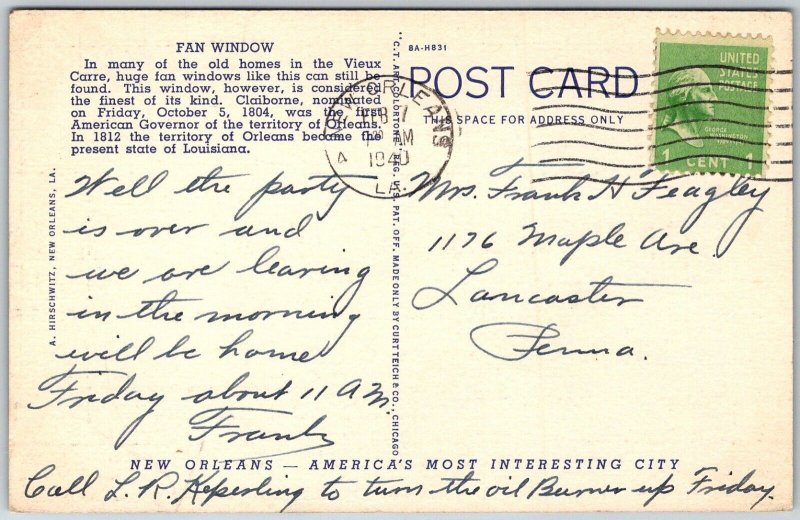 FAN WINDOW
In many of the old homes in the Vieux
Carre, huge fan windows like this can still be
found. This window, however, is considered
the finest of its kind. Claiborne, nominated
on Friday, October 5, 1804, was the first
American Governor of the territory of Orleans.
In 1812 the territory of Orleans became the
present state of Louisiana.
Well the party
is over and
we are leaving
in the morning
will be home
Friday about 11 A.M.
Frank
A. HIRSCHWITZ, NEW ORLEANS, LA.
"C.T. ART-COLORTONE" REG. U.S. PAT. OFF. MADE ONLY BY CURT TEICH & CO., CHICAGO
8A-H831
POST CARD
THIS SPACE FOR ADDRESS ONLY
NEW ORLEANS
AM
1940
LA.
UNITED
STATES
POSTAGE
GEORGE
WASHINGTON
1 CENT 1
Mrs. Frank H Feagley
1176 Maple Ave.
Lancaster
Penna.
NEW ORLEANS — AMERICA'S MOST INTERESTING CITY
Call L. R. Keperling to turn the oil Burner up Friday.